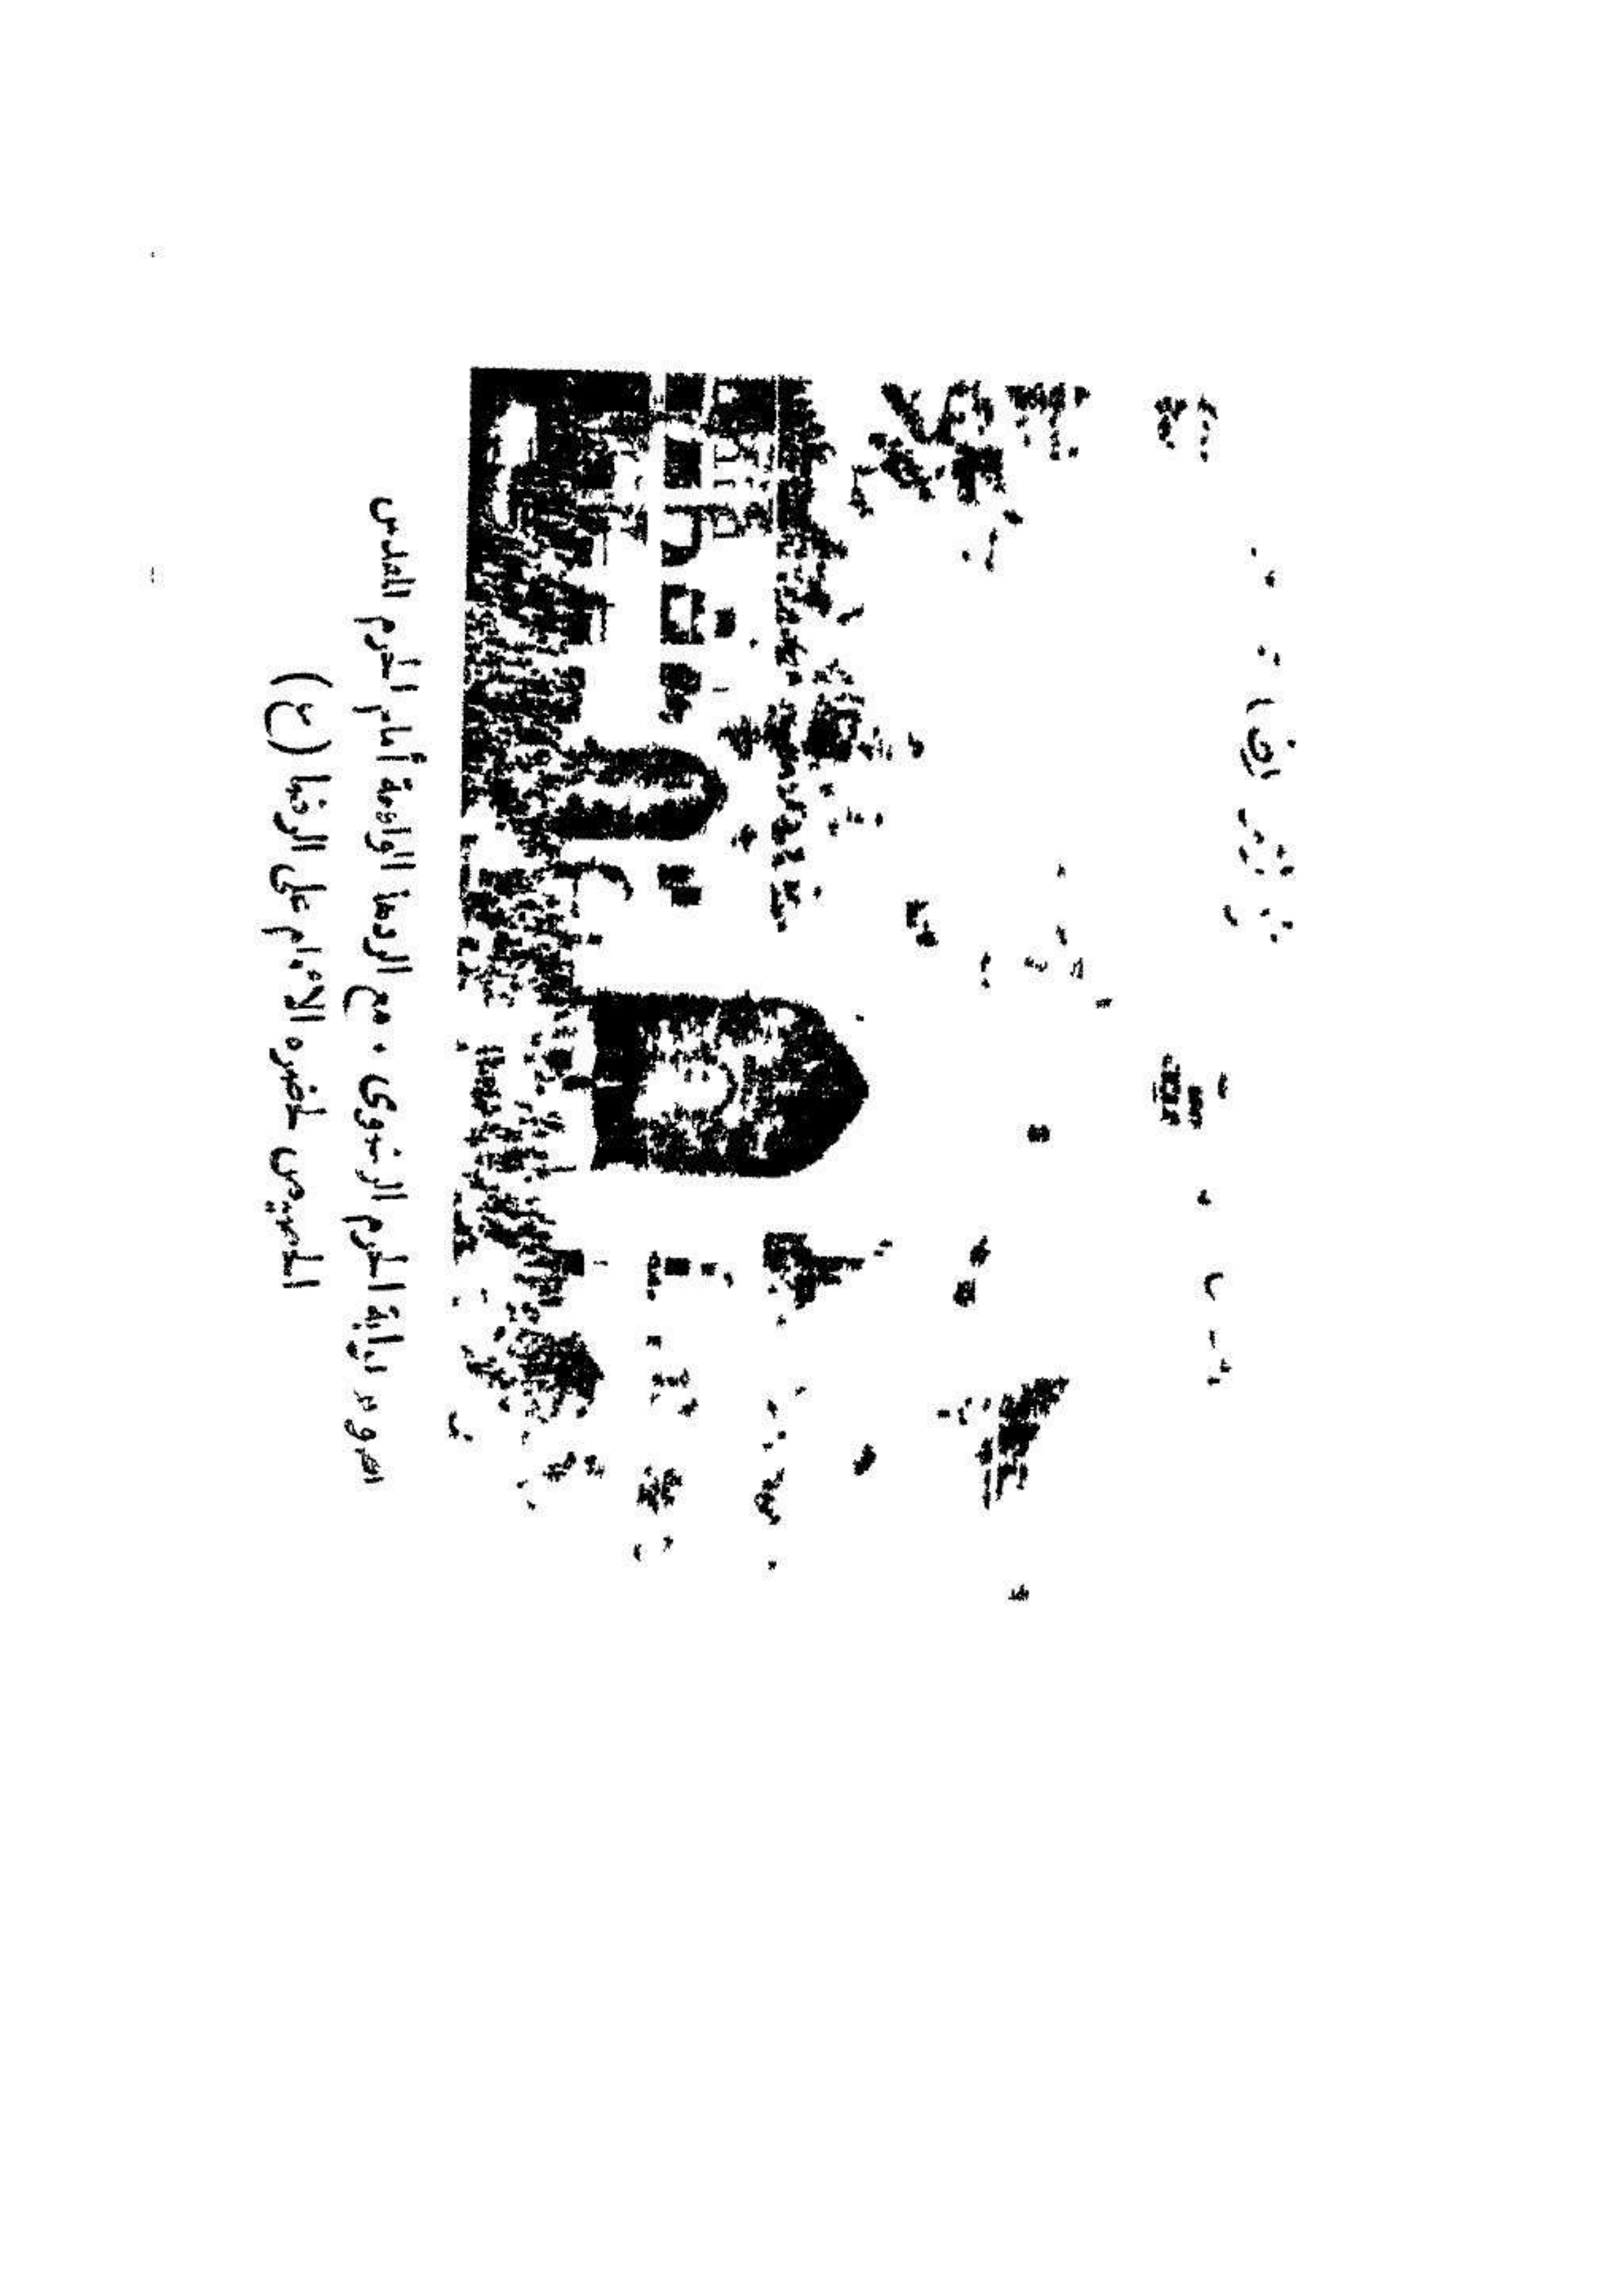 صورة لبوابة الحرم الرضوى . مع الردهة الواقعة أمام الحرم المقدس
الحسينى لحضرة الامام على الرضا (ع)